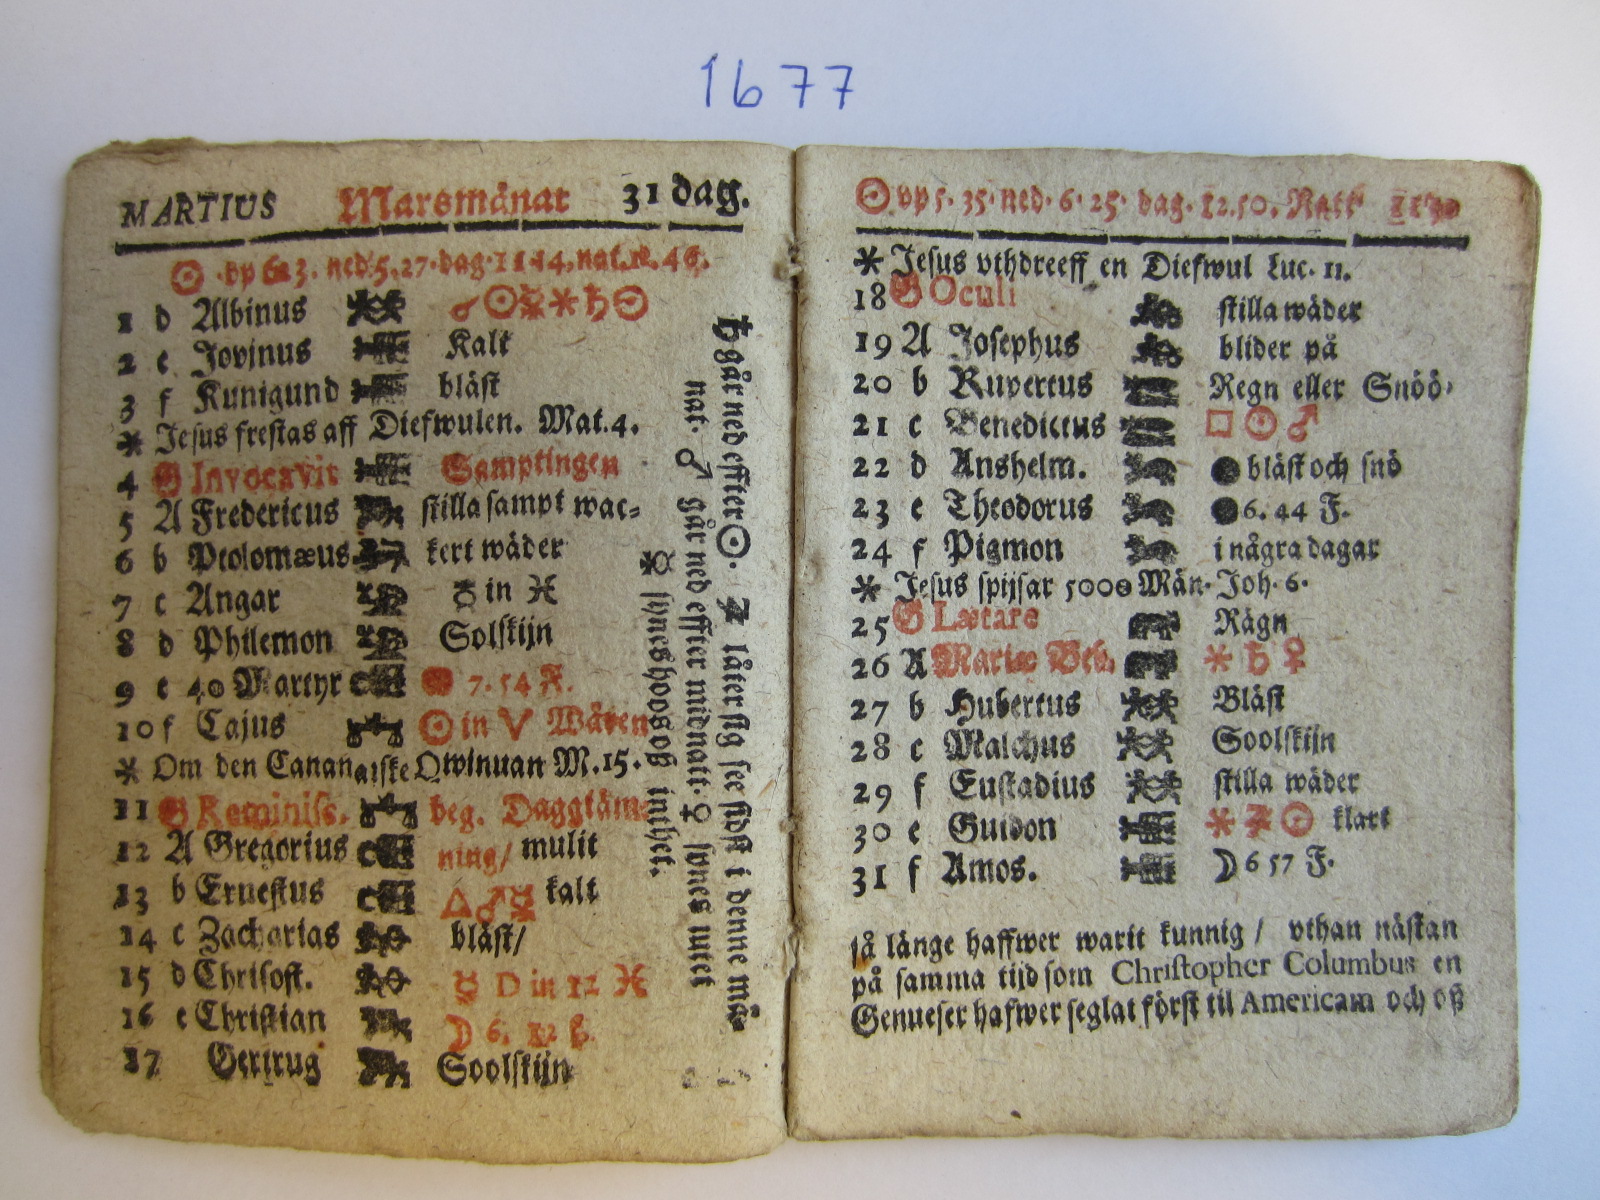 1677
MARTIUS Marsmånat 31 dag.
☉ ·vp 6. 3. ned. 5. 27. dag. 11 14. nat. 12. 46.
1 d Albinus ☌ ☉ ☿ ⚹ ♄ ☉
2 e Jovinus Kalt
3 f Kunigund bläst
⚹ Jesus frestas aff Diefwulen. Mat. 4.
4 G Invocavit Samptingen
5 A Fredericus stilla sampt wac⸗
6 b Ptolomæus kert wäder
7 c Angar ☿ in ♓
8 d Philemon Solskijn
9 e 40 Martyr 7. 54 F.
10 f Cajus ☉ in ♈ Wåren
⚹ Om den Cananaiske Qwinnan M. 15.
11 G Reminisc. beg. Daggiäm⸗
12 A Gregorius ning/ mulit
13 b Ernestus △ ♂ ☿ kalt
14 c Zacharias bläst/
15 d Chrisost. ☿ D in 12 ♓
16 e Christian ☽ 6. 12
17 Gertrug Soolskijn
♄ går ned effter ☉. ♃ låter sig see sidst i denne må⸗
nat. ♂ går ned effter midnatt. ♀ synes intet
☿ synes hoos oß inthet.
☉ vp 5. 35. ned. 6. 25. dag. 12. 50. Natt
⚹ Jesus vthdreeff en Diefwul Luc. 11.
18 G Oculi stilla wäder
19 A Josephus blider på
20 b Rupertus Regn eller Snöö.
21 c Benedictus □ ☉ ♂
22 d Anshelm. ● bläst och snö
23 e Theodorus ● 6. 44 F.
24 f Pigmon i några dagar
⚹ Jesus spijsar 5000 Män. Joh. 6.
25 G Lætare Rägn
26 A Mariæ Beb. ⚹ ♄ ♀
27 b Hubertus Bläst
28 c Malchus Soolskijn
29 f Eustadius stilla wäder
30 e Guidon ⚹ ♃ ☉ klart
31 f Amos. ☽ 6 57 F.
så länge haffwer warit kunnig / vthan nästan
på samma tijd som Christopher Columbus en
Genueser hafwer seglat först til Americam och oß